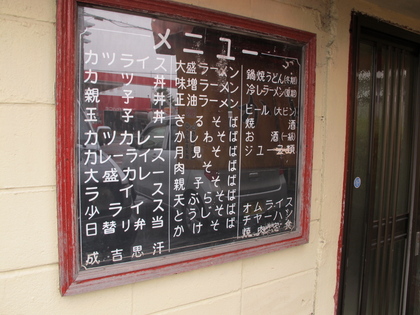 メニュー
カツライス
カツ丼
親子丼
玉子丼
カツカレー
カレーライス
大盛カレー
ライス
少ライス
日替り弁当
成吉思汗
大盛ラーメン
味増ラーメン
正油ラーメン
ざるそば
かしわそば
月見そば
肉そば
親子そば
天ぷらそば
とうじそば
かけそば
鍋焼うどん(冬期)
冷しラーメン(夏期)
ビール(大ビン)
焼酒
お酒(一級)
ジュース類
オムライス
チャーハン
焼肉定食